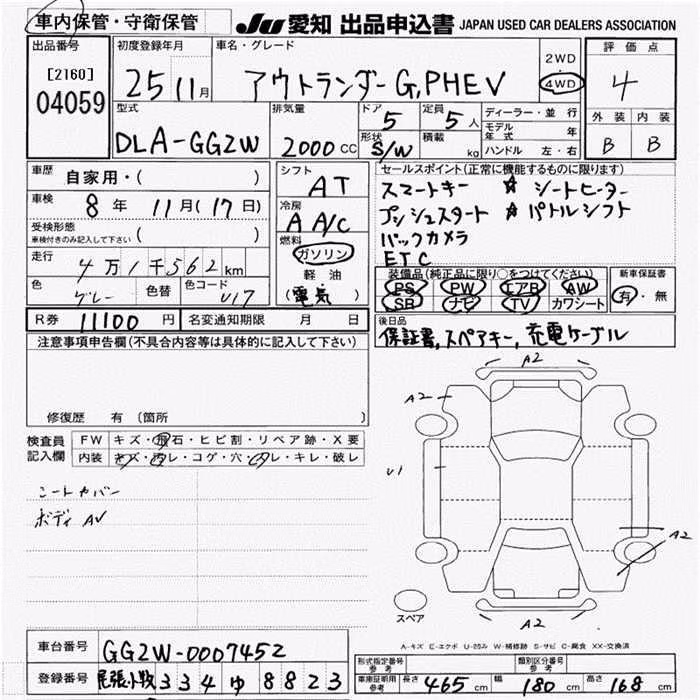 車内保管・守衛保管
JU 愛知 出品申込書 JAPAN USED CAR DEALERS ASSOCIATION
出品番号
[2160]
04059
初度登録年月
25 11月
車名・グレード
アウトランダーG,PHEV
2WD
4WD
評価点
4
外装 内装
B B
型式
DLA-GG2W
排気量
2000 CC
ドア
5
定員
5人
形状
S/W
積載
kg
ディーラー・並行
モデル年式 年
ハンドル 左・右
車歴
自家用・( )
車検
8年 11月(17日)
受検形態
車検付きのみ記入して下さい ( )
走行
4万1千562km
色
グレー
色替
色コード
U17
シフト
AT
冷房
A A/C
燃料
ガソリン
軽油
(電気)
セールスポイント(正常に機能するものに限ります)
スマートキー ☆ シートヒーター
プッシュスタート ☆ パドルシフト
バックカメラ
ETC
装備品(純正品に限り○をつけてください)
PS PW エアB AW
SR ナビ TV カワシート
新車保証書
有・無
R券 11100円
名変通知期限 月 日
後日品
保証書,スペアキー,充電ケーブル
注意事項申告欄(不具合内容等は具体的に記入して下さい)
修復歴 有 (箇所 )
検査員記入欄
FW キズ・飛石・ヒビ割・リペア跡・X要
内装 キズ・汚レ・コゲ・穴・スレ・キレ・破レ
シートカバー
ボディ AV
A2
A2
U1
A2
A2
スペア
A-キズ E-エクボ U-凹み W-補修跡 S-サビ C-腐食 XX-交換済
車台番号
GG2W-0007452
登録番号
尾張小牧 334 ゆ 8823
形式指定番号
参考
類別区分番号
参考
車庫証明用
参考
長さ 465 cm 幅 180 cm 高さ 168 cm